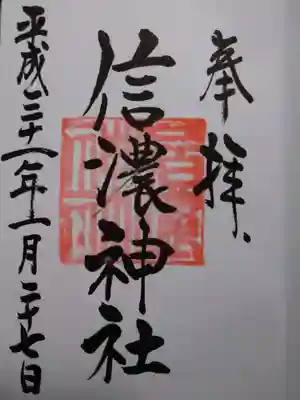 奉拝、
信濃神社
平成二十一年一月二十七日